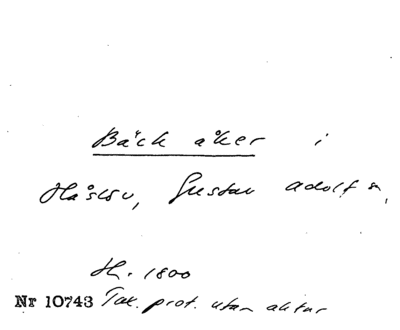 Bäck åker i
Håslöv, Gustav Adolf s,
H. 1800
Nr 10743 Tax. prot. utan aktnr